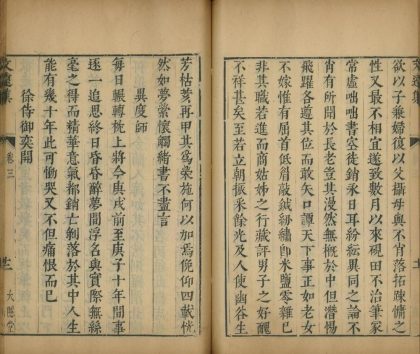 欲以子兼婦復以父攝母與不肖落拓疎慵之
性又最不相宜遂致數月以來硯田不治筆冢
常虛咄咄書空徒銷永日耳紛紜異同之論不
肖有所聞於長老豈其漫然無概於中但潛惕
飛躍各遵其位而敢矢口譚天下事正如老女
不嫁惟有屈首低眉敲鍼紉繡卽米鹽零雜已
非其職若進而商姑姊之行藏評男子之好醜
不祥甚矣若立朝振采餘光及人使幽谷生
芳枯荄再甲其為榮施何以加焉俛仰四載恍
然如夢縈懷觸緒書不盡言
異度師
每日輾轉枕上將今庚戌前至庚子十年間事
逐一追思終日昏昏醉夢間浮名與實際無絲
毫之得而精華意氣都銷亡剝落於其中人生
能有幾十年此可慟哭又不但痛恨而已
徐侍御奕開
卷三